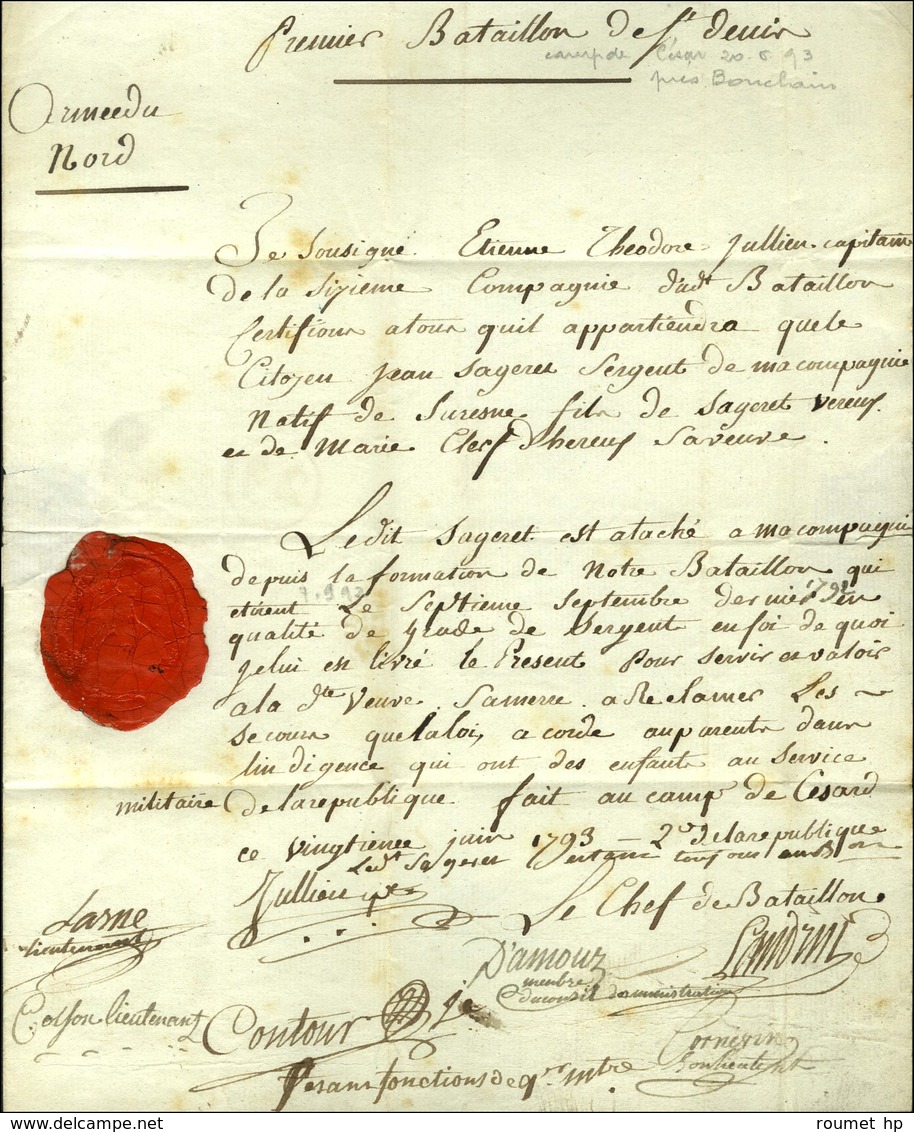 Premier Bataillon de St denis
camp de César 20.6.93
près Bouchain
Armee du
Nord
Je Sousigné Etienne Theodore Jullien capitain
de la Sizieme Compagnie dudt Bataillon
Certifions a tous quil appartiendra que le
Citoyen Jean Sageret Sergent de ma compagnie
Natif de Suresne fils de Sageret
et de Marie Sa veuve .
Ledit Sageret est ataché a ma compagnie
depuis la formation de Notre Bataillon qui
7.9.92 1792
etoient Le Septieme Septembre dernier en
qualité de Grade de Sergent en foi de quoi
je lui est livré le Present Pour servir et valoir
a la dte Veuve Sa mere a Reclamer Les ~
secours que la loi, a corde au parents dans
lindigence qui ont des enfants au Service
militaire De la republique fait au camp de Césard
ce vingtieme juin 1793 – 2e de la republique
Ledt Sageret
Jullien
Le Chef de Bataillon
Larne
lieutenant
D'amour
membre
du conseil dadministration
Cosson lieutenant
Contour
fesant fonctions de qr mtre
roumet hp